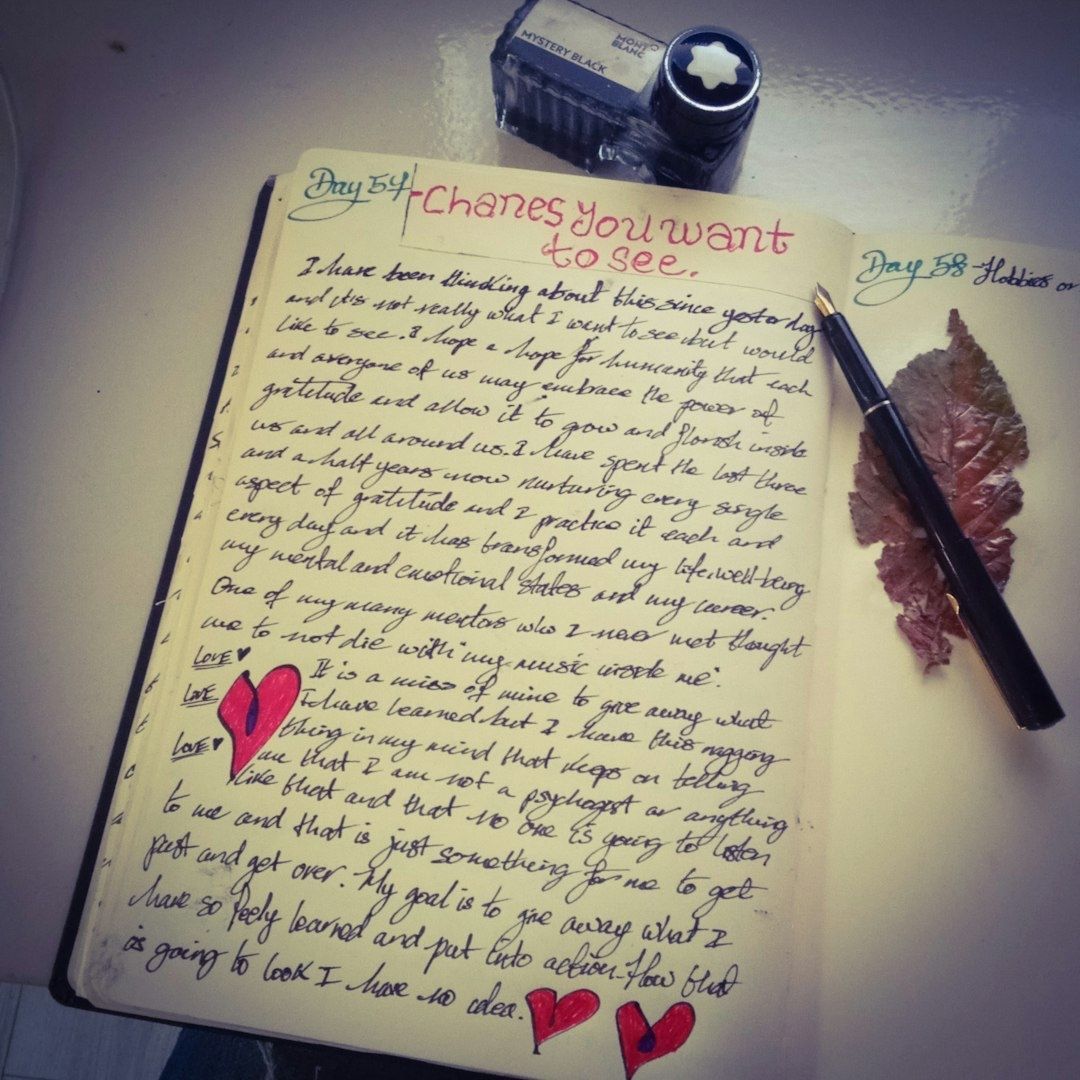 MONT
BLANC
MYSTERY BLACK
Day 57
-Chanes You want
to see.
I have been thinking about this since yesterday
and it's not really what I want to see but would
like to see. I hope a hope for humanity that each
and everyone of us may embrace the power of
gratitude and allow it to grow and florish inside
us and all around us. I have spent the last three
and a half years now nurturing every single
aspect of gratitude and I practice it each and
every day and it has transformed my life, well-being
my mental and emotional states and my career.
One of my many mentors who I never met thought
me to not die with my music inside me".
LOVE ♥
LOVE
LOVE ♥
It is a miss of mine to give away what
I have learned but I have this nagging
thing in my mind that keeps on telling
me that I am not a psychogst or anything
like that and that no one is going to listen
to me and that is just something for me to get
past and get over. My goal is to give away what I
have so feely learned and put into action-How that
is going to look I have no idea.
Day 58 -Hobbies or